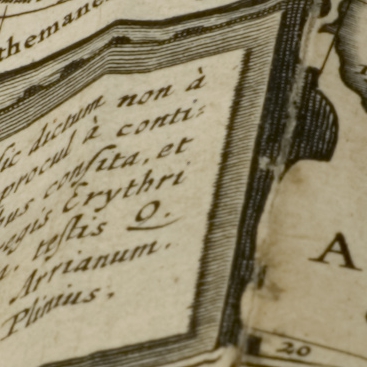 themane
sic dictum non à
procul à conti-
consita, et
regis Erythri
testis Q.
Arrianum.
Plinius.
A
20